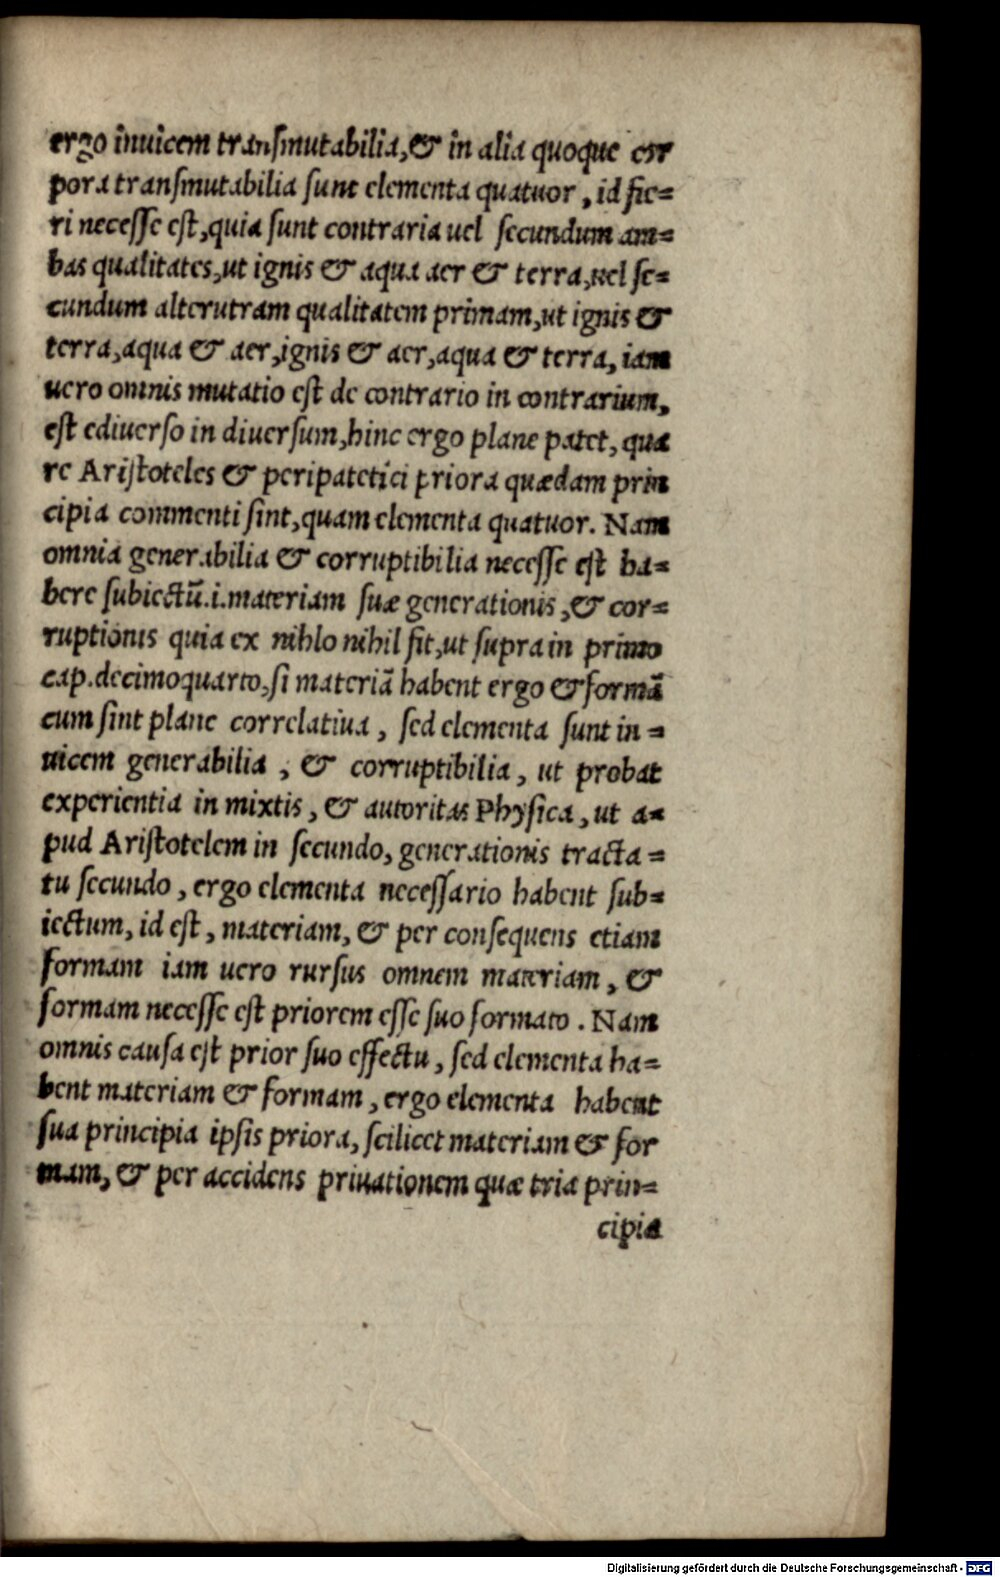 ergo inuicem transmutabilia,& in alia quoque cor
pora transmutabilia sunt elementa quatuor, id fie=
ri necesse est,quia sunt contraria uel secundum am=
bas qualitates,ut ignis & aqua aer & terra,uel se=
cundum alterutram qualitatem primam,ut ignis &
terra,aqua & aer,ignis & aer,aqua & terra, iam
uero omnis mutatio est de contrario in contrarium,
est ediuerso in diuersum,hinc ergo plane patet, qua
re Aristoteles & peripatetici priora quædam prin
cipia commenti sint,quam elementa quatuor. Nam
omnia generabilia & corruptibilia necesse est ha=
bere subiectū.i.materiam suæ generationis,& cor=
ruptionis quia ex nihlo nihil fit,ut supra in primo
cap.decimoquarto,si materiā habent ergo & formā
cum sint plane correlatiua, sed elementa sunt in=
uicem generabilia, & corruptibilia, ut probat
experientia in mixtis, & autoritas Physica, ut a=
pud Aristotelem in secundo, generationis tracta=
tu secundo, ergo elementa necessario habent sub=
iectum, id est, materiam, & per consequens etiam
formam iam uero rursus omnem materiam, &
formam necesse est priorem esse suo formato. Nam
omnis causa est prior suo effectu, sed elementa ha=
bent materiam & formam, ergo elementa habent
sua principia ipsis priora, scilicet materiam & for
mam, & per accidens priuationem quæ tria prin=
cipia
Digitalisierung gefördert durch die Deutsche Forschungsgemeinschaft - DFG